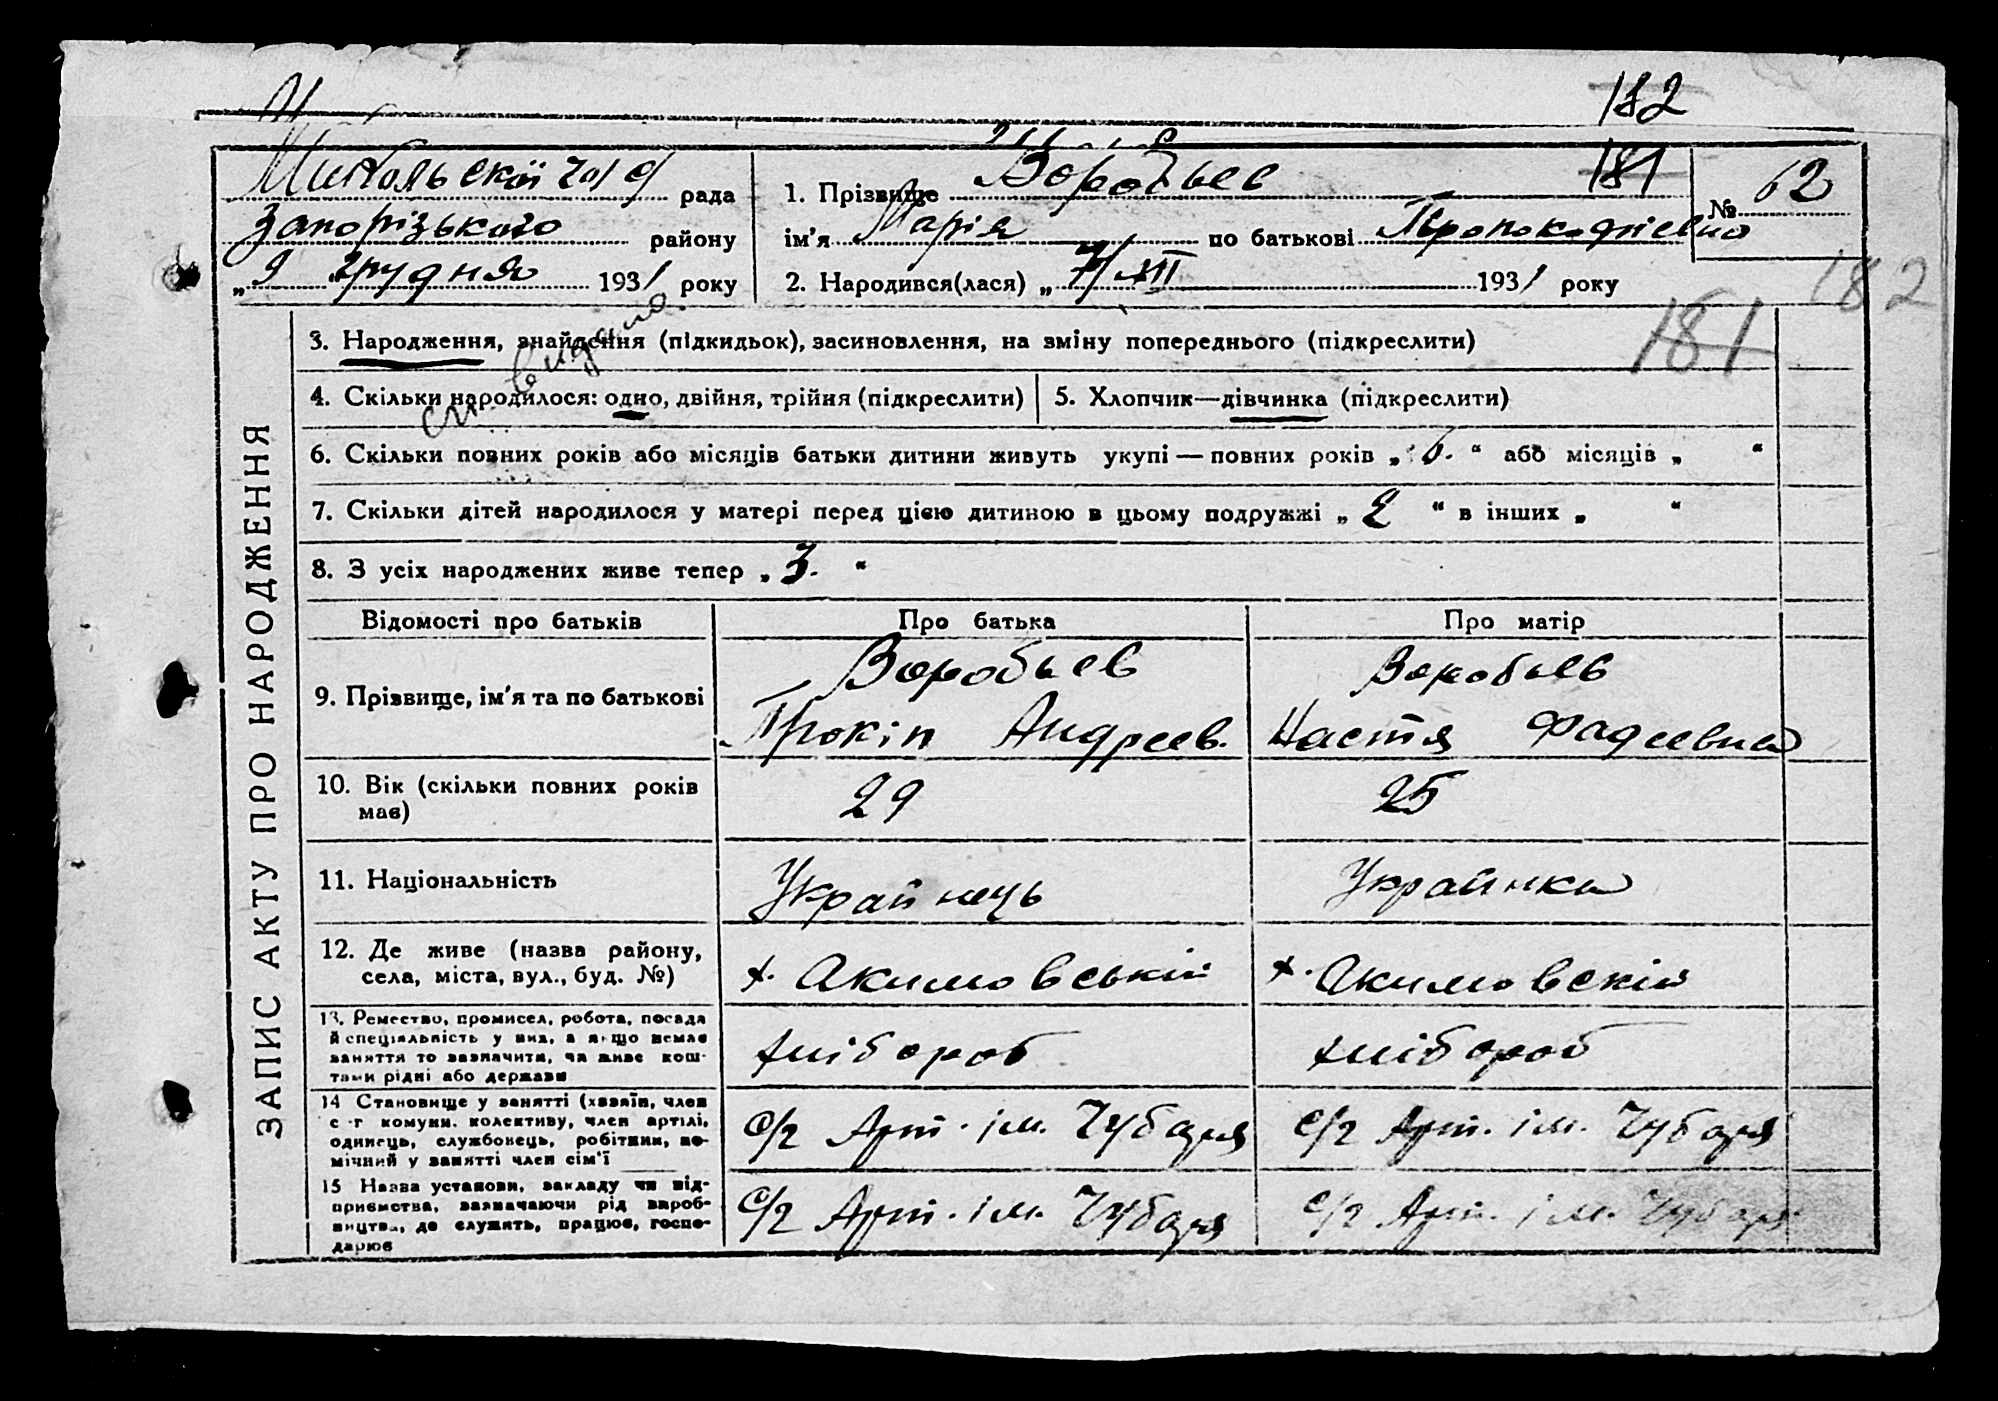 182
рада
1. Прізвище Воробьев
181
№ 62
Запорізького району
ім'я Марія по батькові
„9“ грудня 1931 року
2. Народився(лася) „7/XII 1931 року
182
181
3. Народження, знайдення (підкидьок), засиновлення, на зміну попереднього (підкреслити)
видано.
4. Скільки народилося: одно, двійня, трійня (підкреслити)
5. Хлопчик—дівчинка (підкреслити)
6. Скільки повних років або місяців батьки дитини живуть укупі — повних років „6.“ або місяців „ “
7. Скільки дітей народилося у матері перед цією дитиною в цьому подружжі „2“ в інших „ “
8. З усіх народжених живе тепер „3.“
ЗАПИС АКТУ ПРО НАРОДЖЕННЯ
Відомості про батьків
Про батька
Про матір
9. Прізвище, ім'я та по батькові
Воробьев
Прокіп Андреев.
Воробьев
Настя Фадеевна
10. Вік (скільки повних років
має)
29
25
11. Національність
Украйнець
Украинка
12. Де живе (назва району,
села, міста, вул., буд. №)
х. Акимовській
х. Акимовскій
13. Ремество, промисел, робота, посада
й спеціяльність у них, а якщо немає
заняття то зазначити, чи живе кош-
тами рідні або держави
хліб ороб
хлібороб
14 Становище у занятті (хазяїн, член
с -г комуни. колективу, член артілі,
одинець, службовець, робітник, по-
мічний у занятті член сім'ї
с/г Арт. ім. Чубаря
с/г Арт. ім. Чубаря
15 Назва установи, закладу чи під-
приємства, зазначаючи рід вироб-
ництва, де служить, працює, госпо-
дарює
с/г Арт. ім. Чубаря
с/г Арт. ім. Чубаря